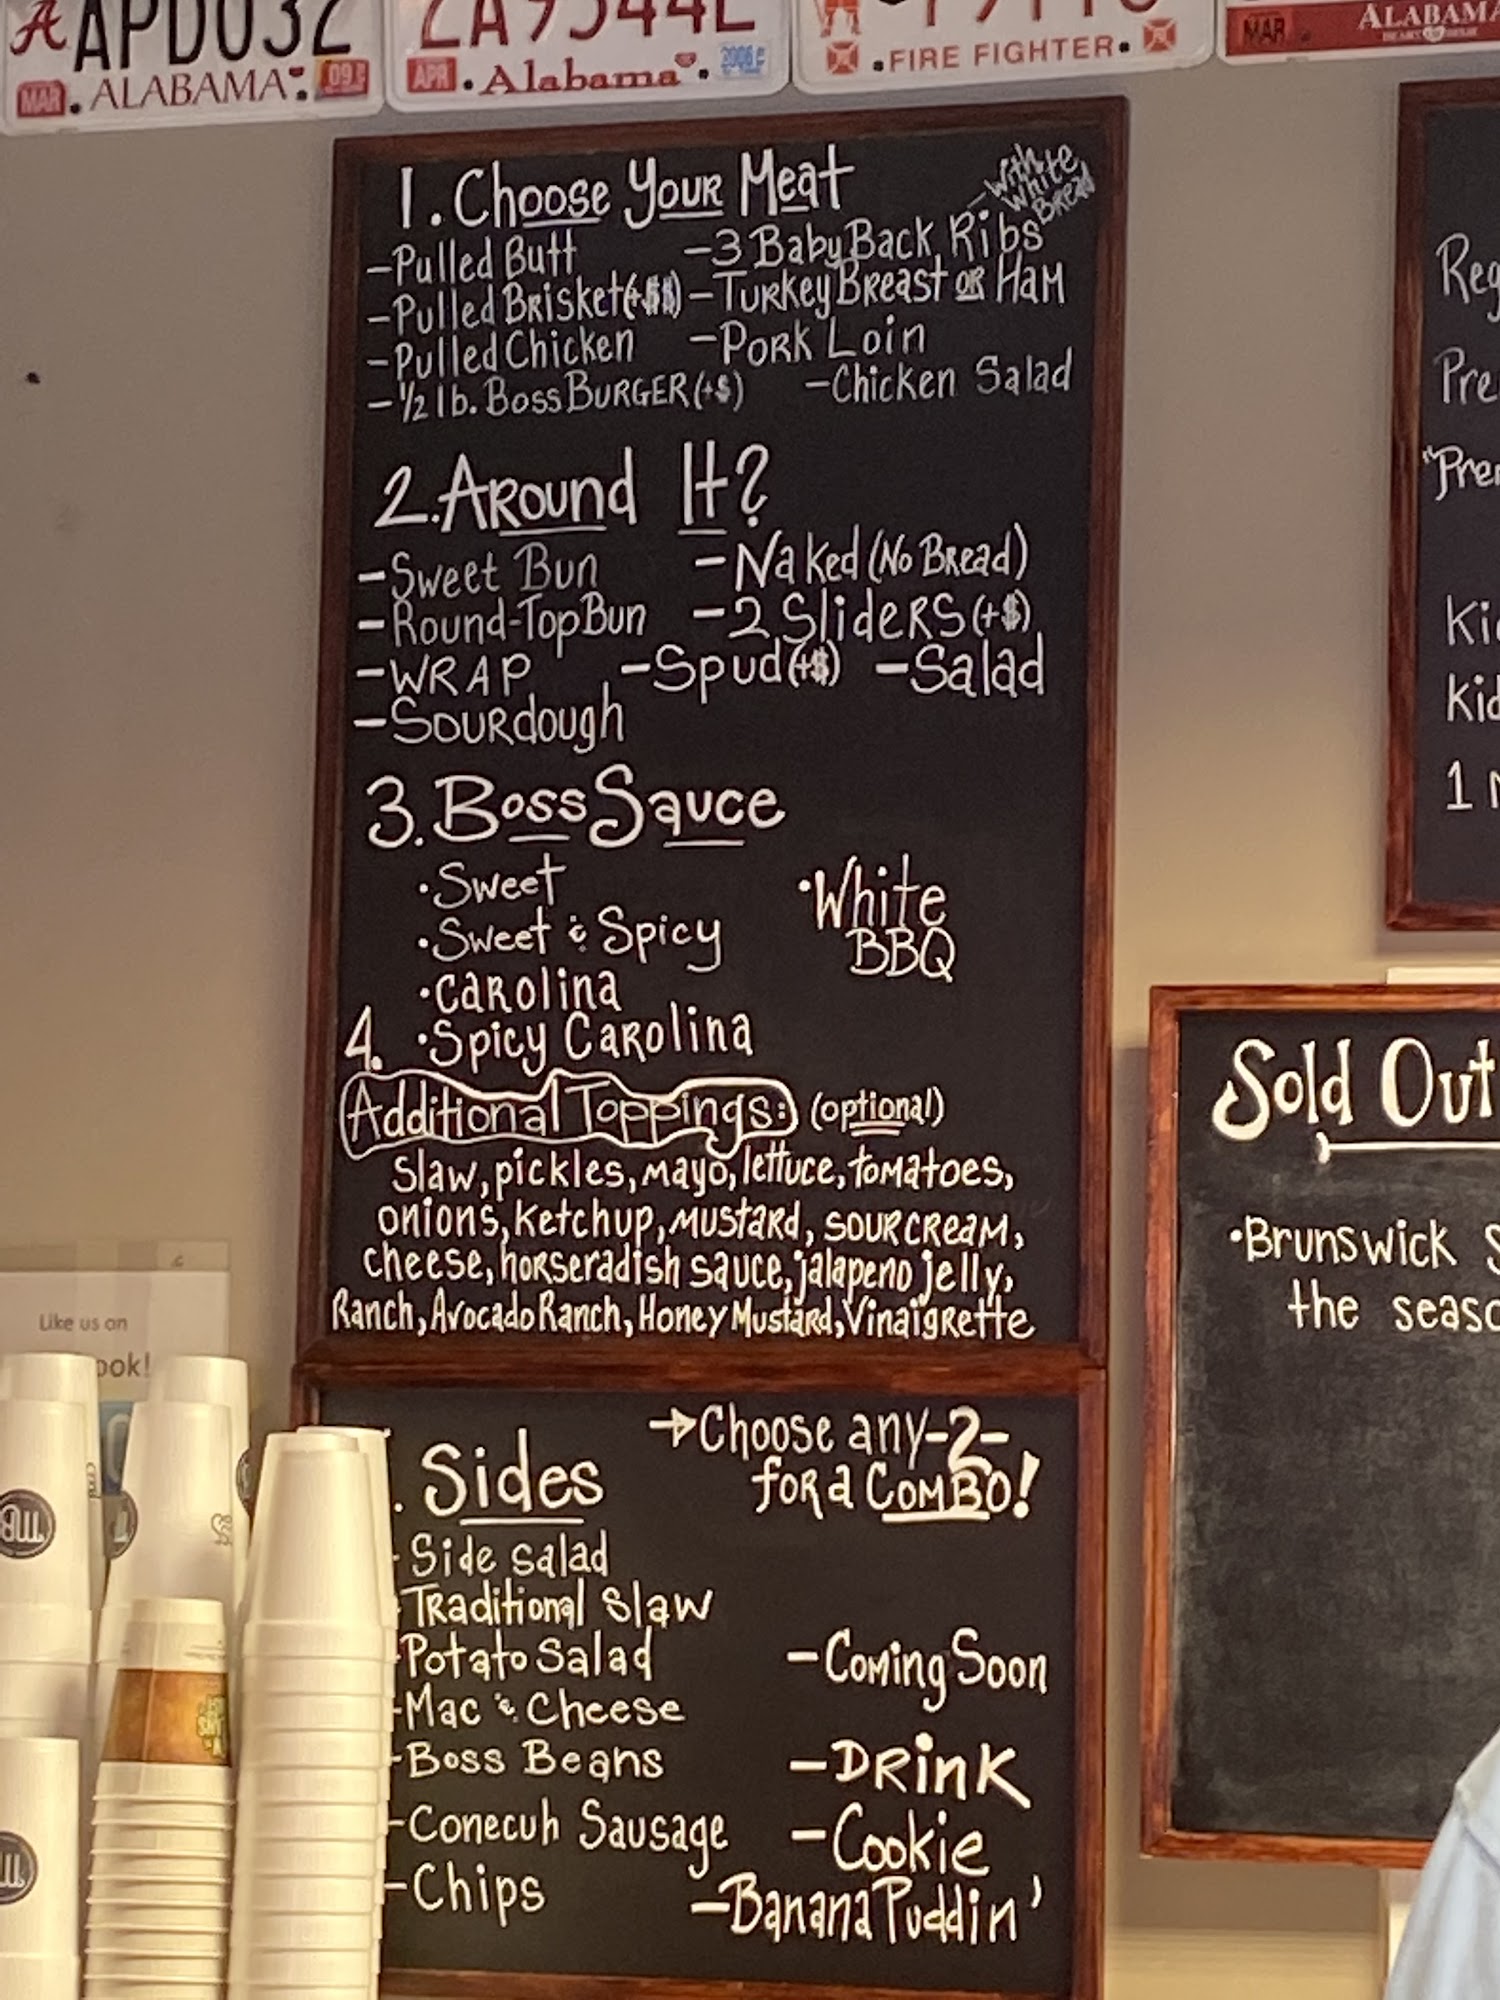 APD032
MAR ALABAMA 09
APR Alabama 2006
FIRE FIGHTER
MAR ALABAMA
1. Choose Your Meat
-With White Bread
-Pulled Butt -3 Baby Back Ribs
-Pulled Brisket(+$$) -Turkey Breast or Ham
-Pulled Chicken -Pork Loin
-1/2 lb. Boss Burger(+$) -Chicken Salad
2. Around It?
-Sweet Bun -Naked (No Bread)
-Round-Top Bun -2 Sliders (+$)
-Wrap -Spud(+$) -Salad
-Sourdough
3. Boss Sauce
•Sweet •White
•Sweet & Spicy BBQ
•Carolina
4. •Spicy Carolina
Additional Toppings: (optional)
slaw, pickles, mayo, lettuce, tomatoes,
onions, ketchup, mustard, sour cream,
cheese, horseradish sauce, jalapeno jelly,
Ranch, Avocado Ranch, Honey Mustard, Vinaigrette
→Choose any -2-
. Sides for a Combo!
- Side salad
-Traditional slaw
-Potato Salad -Coming Soon
-Mac & Cheese
-Boss Beans -Drink
-Conecuh Sausage -Cookie
-Chips -Banana Puddin'
Reg
Pre
"Prem
Kid
Kid
1
Sold Out
•Brunswick S
the seaso
Like us on
ook!